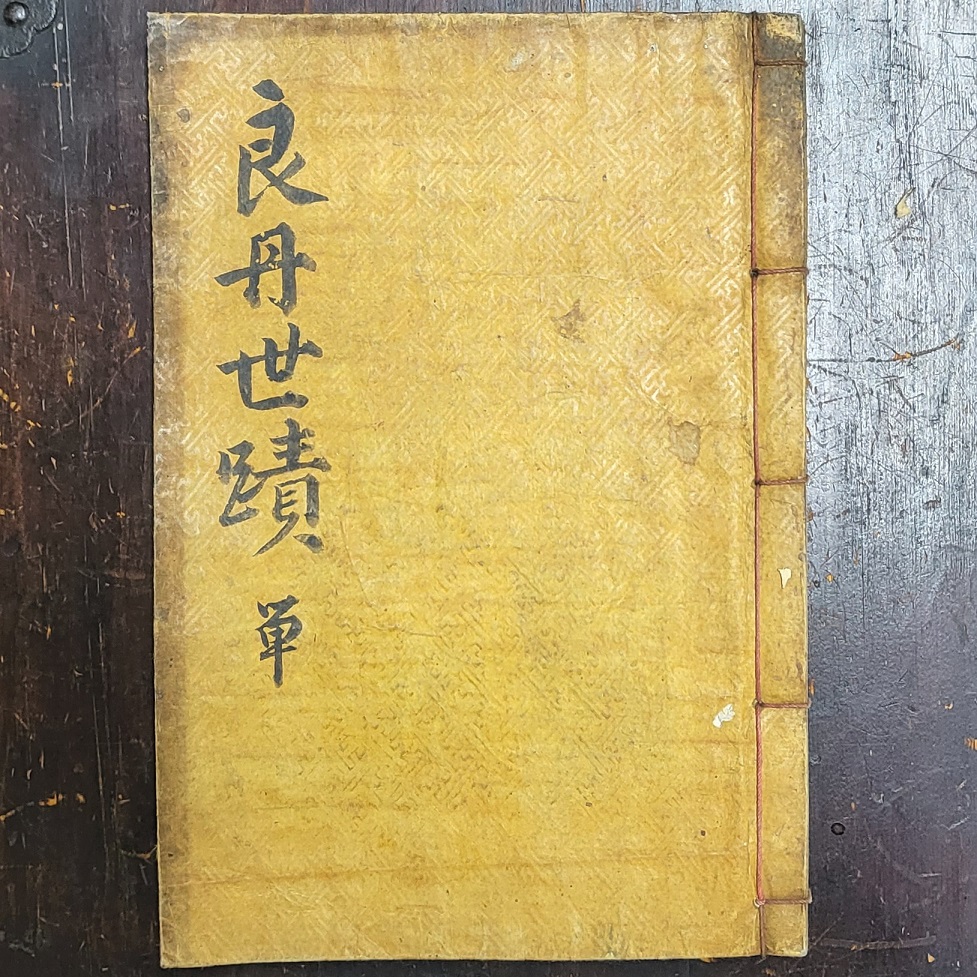 良丹世蹟 単